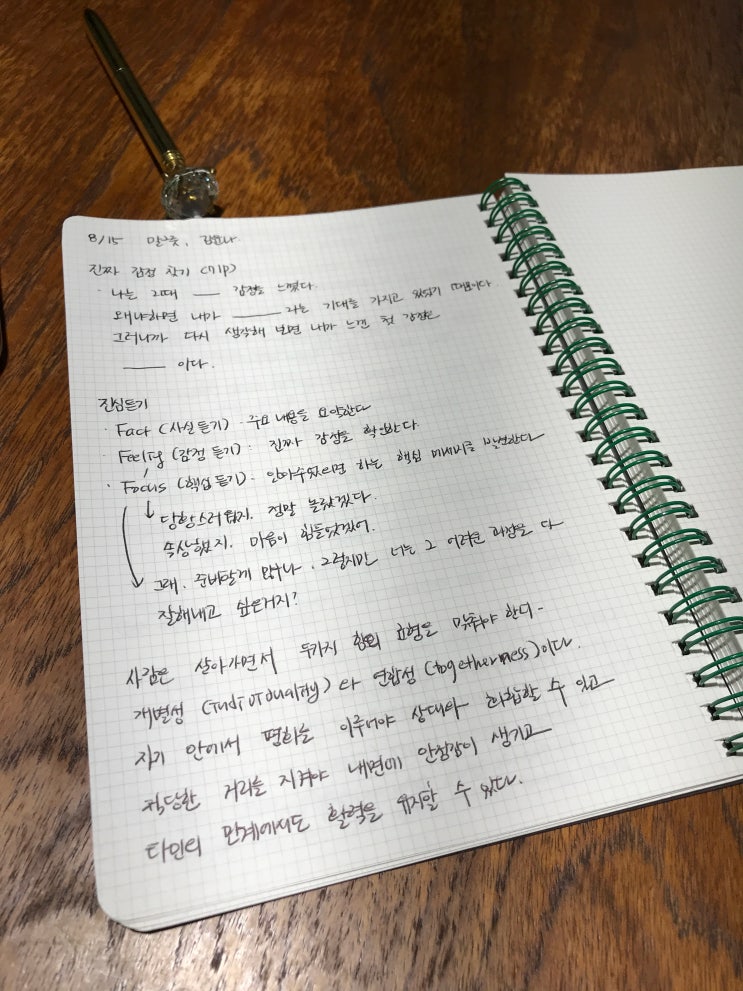 8/15 말그릇, 김윤나
진짜 감정 찾기 (기법)
· 나는 그때 ___ 감정을 느꼈다.
왜냐하면 내가 ___ 라는 기대를 가지고 있었기 때문이다.
그러니까 다시 생각해 보면 내가 느낀 첫 감정은
___ 이다.
진심듣기
· Fact (사실 듣기) · 주요 내용을 요약한다
· Feeling (감정 듣기) · 진짜 감정을 확인한다.
· Focus (핵심 듣기) · 알아주었으면 하는 핵심 메세지를 발견한다
↳ 당황스러웠지. 정말 놀랐겠다.
속상했지. 마음이 힘들었겠어.
그래. 준비할게 많구나. 그렇지만 너는 그 어려운 과정을 다
잘해내고 싶은거지?
사람은 살아가면서 두가지 힘의 균형을 맞춰야 한다-
개별성 (Individuality) 와 연합성 (togetherness)이다.
자기 안에서 평화를 이루어야 상대와 화합할 수 있고
적당한 거리를 지켜야 내면에 안정감이 생기고
타인의 관계에서도 활력을 유지할 수 있다.